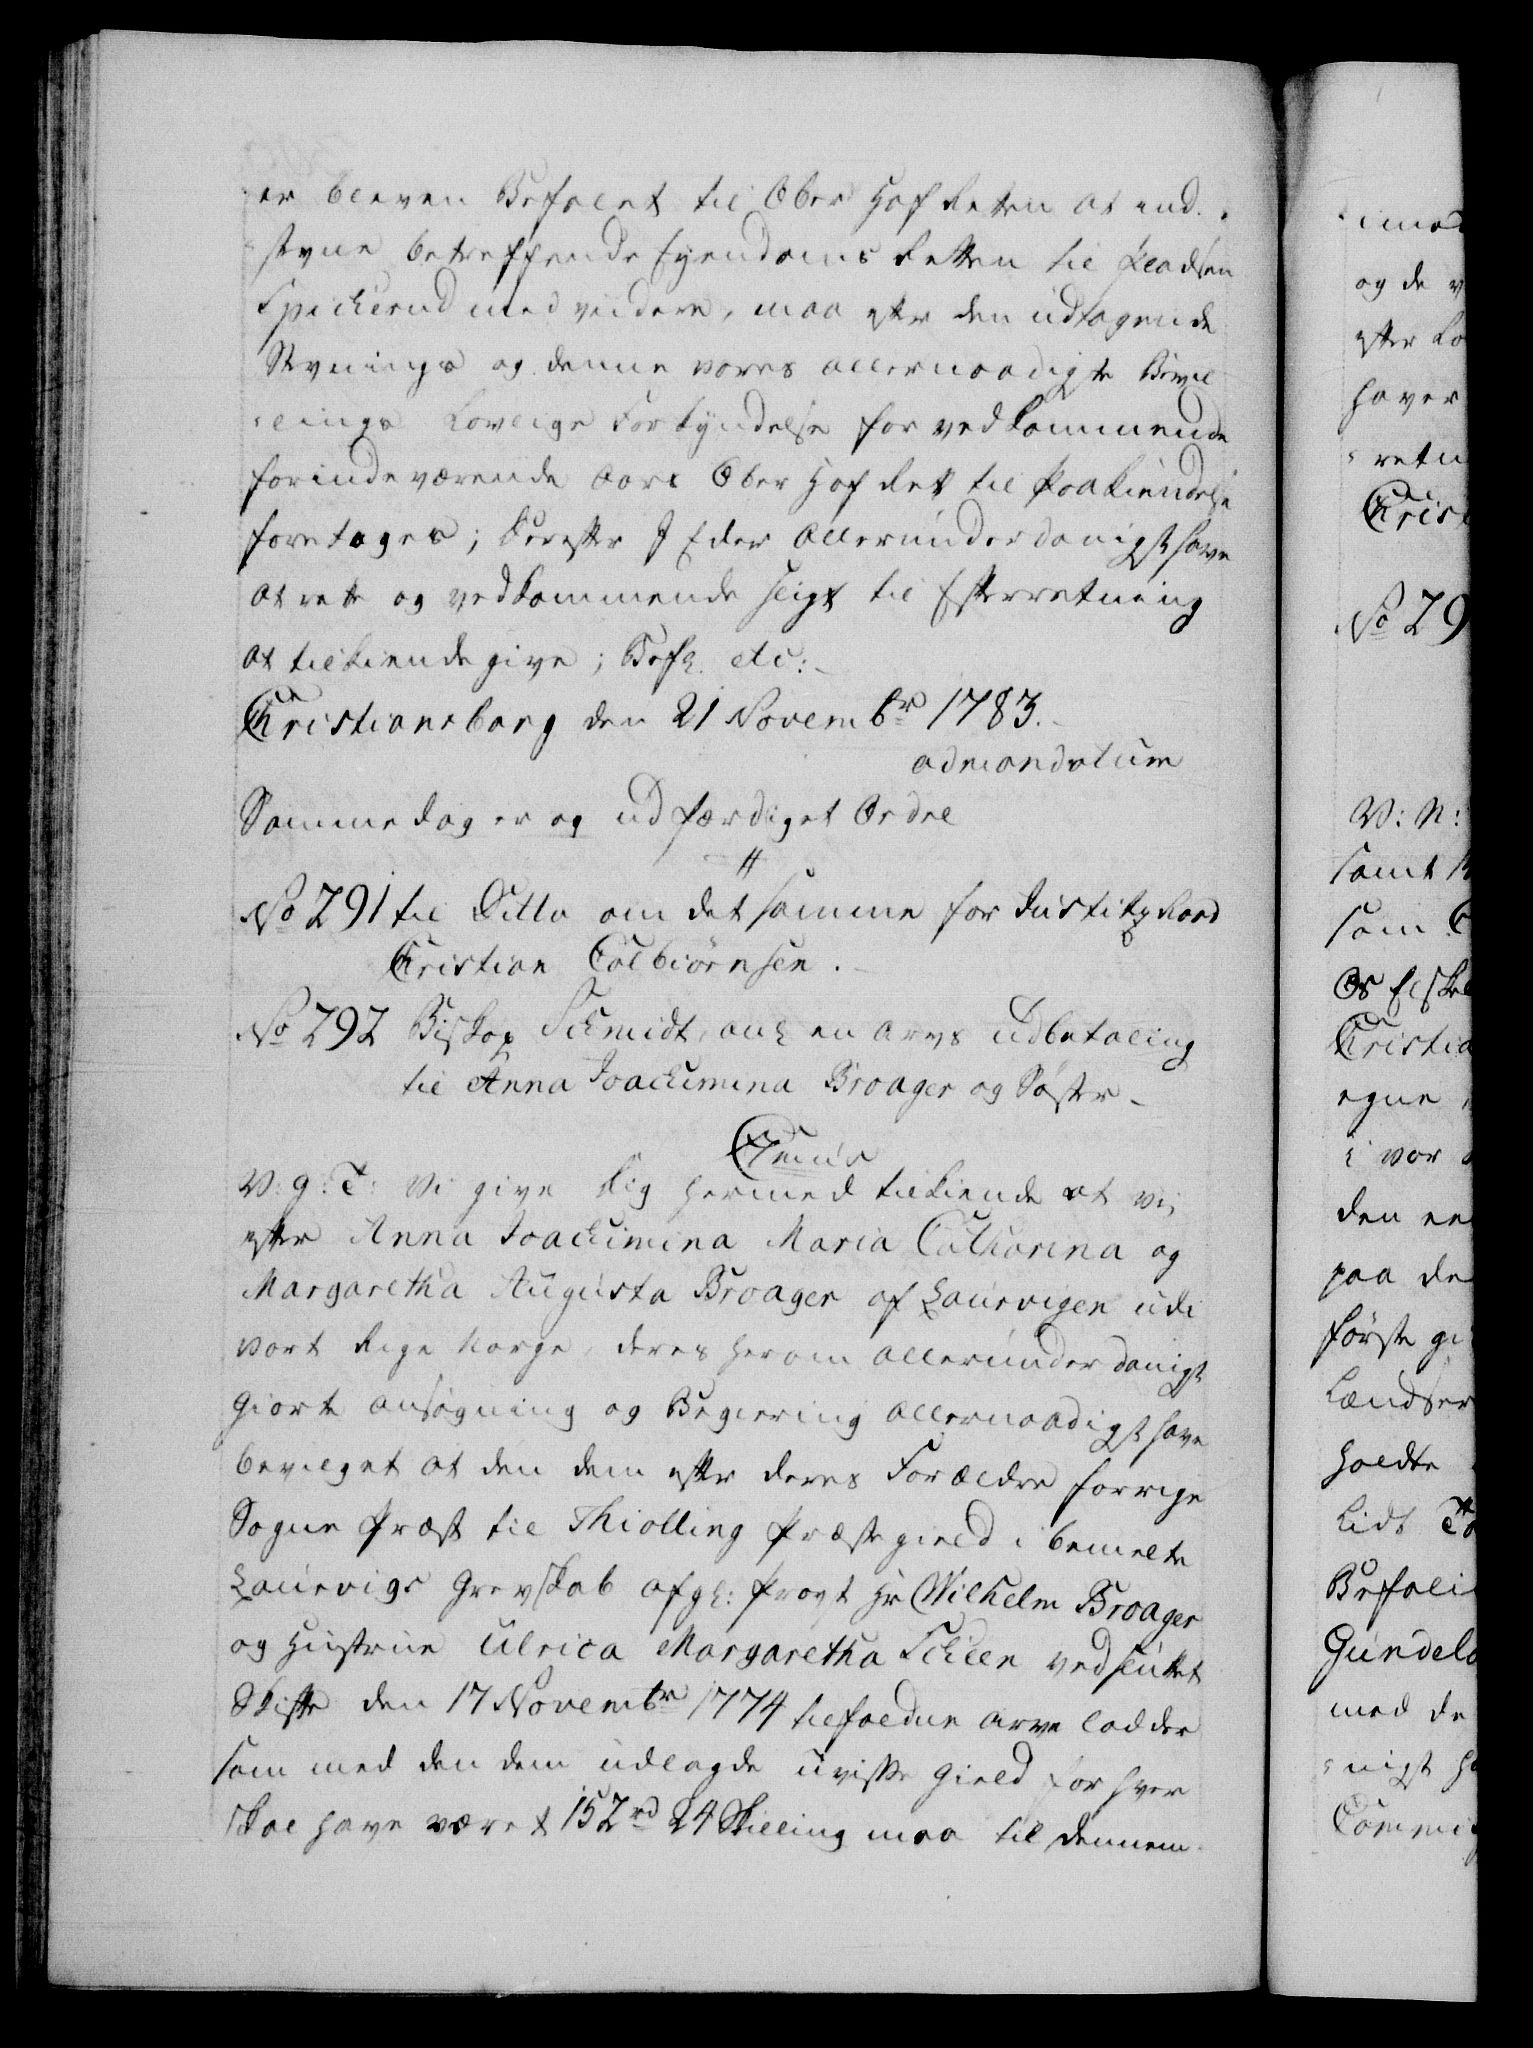 er bleven Befalet til Ober Hof Retten at ind
stevne betreffende Eyendoms Retten til Pladsen
Spickerud med videre, maa efter den udtagende
Stevnings og denne vores allernaadigste Bevil
lings Lovlige Forkyndelse for vedkommende
forindeværende Aars Ober Hof Ret til Paakiendelse
foretages; Derefter I Eder allerunderdanigst have
at rette og vedkommende sligt til Efterretning
at tilkiendegive; Befh. etc:
Christiansborg den 21 Novembr 1783.
ad mandatum
Samme dag er og udfærdiget Ordre
No 291 til Ditto om det samme for Justitz Raad
Christian Colbiørnsen.
No 292 Biskop Schmidt, anl en Arvs udbetaling
til Anna Joachimina Broager og Søster
V: g: T: Vi give Dig hermed tilkiende at vi,
efter Anna Joachimina Maria Catharina og
Margaretha Augusta Broager af Laurvigen udi
vort Rige Norge, deres herom allerunderdanigst
giorte ansøgning og Begiering allernaadigst have
bevilget at den dem efter deres Forældre forrige
Sogne Præst til Thiølling Præstegield i bemelte
Laurvigs Grevskab afgl: Provst Hr Wilhelm Broager
og Hustrue Ulrica Margaretha Scheen ved sluttet
Skifte den 17 Novembr 1774 tilfaldne arve lodder
som med den dem udlagde uvisse Gield for hver
skal have været 152 rd 24 Skilling maa til dennem
imod
og de
efter Lo
haver
retn
Chris
No 29
V: N:
samt
som C
Os Elske
Christia
egne
i vor
den ee
paa de
første gi
Lændser
holdte
Lidt
Befali
Gundela
med de
nigst ha
Commi